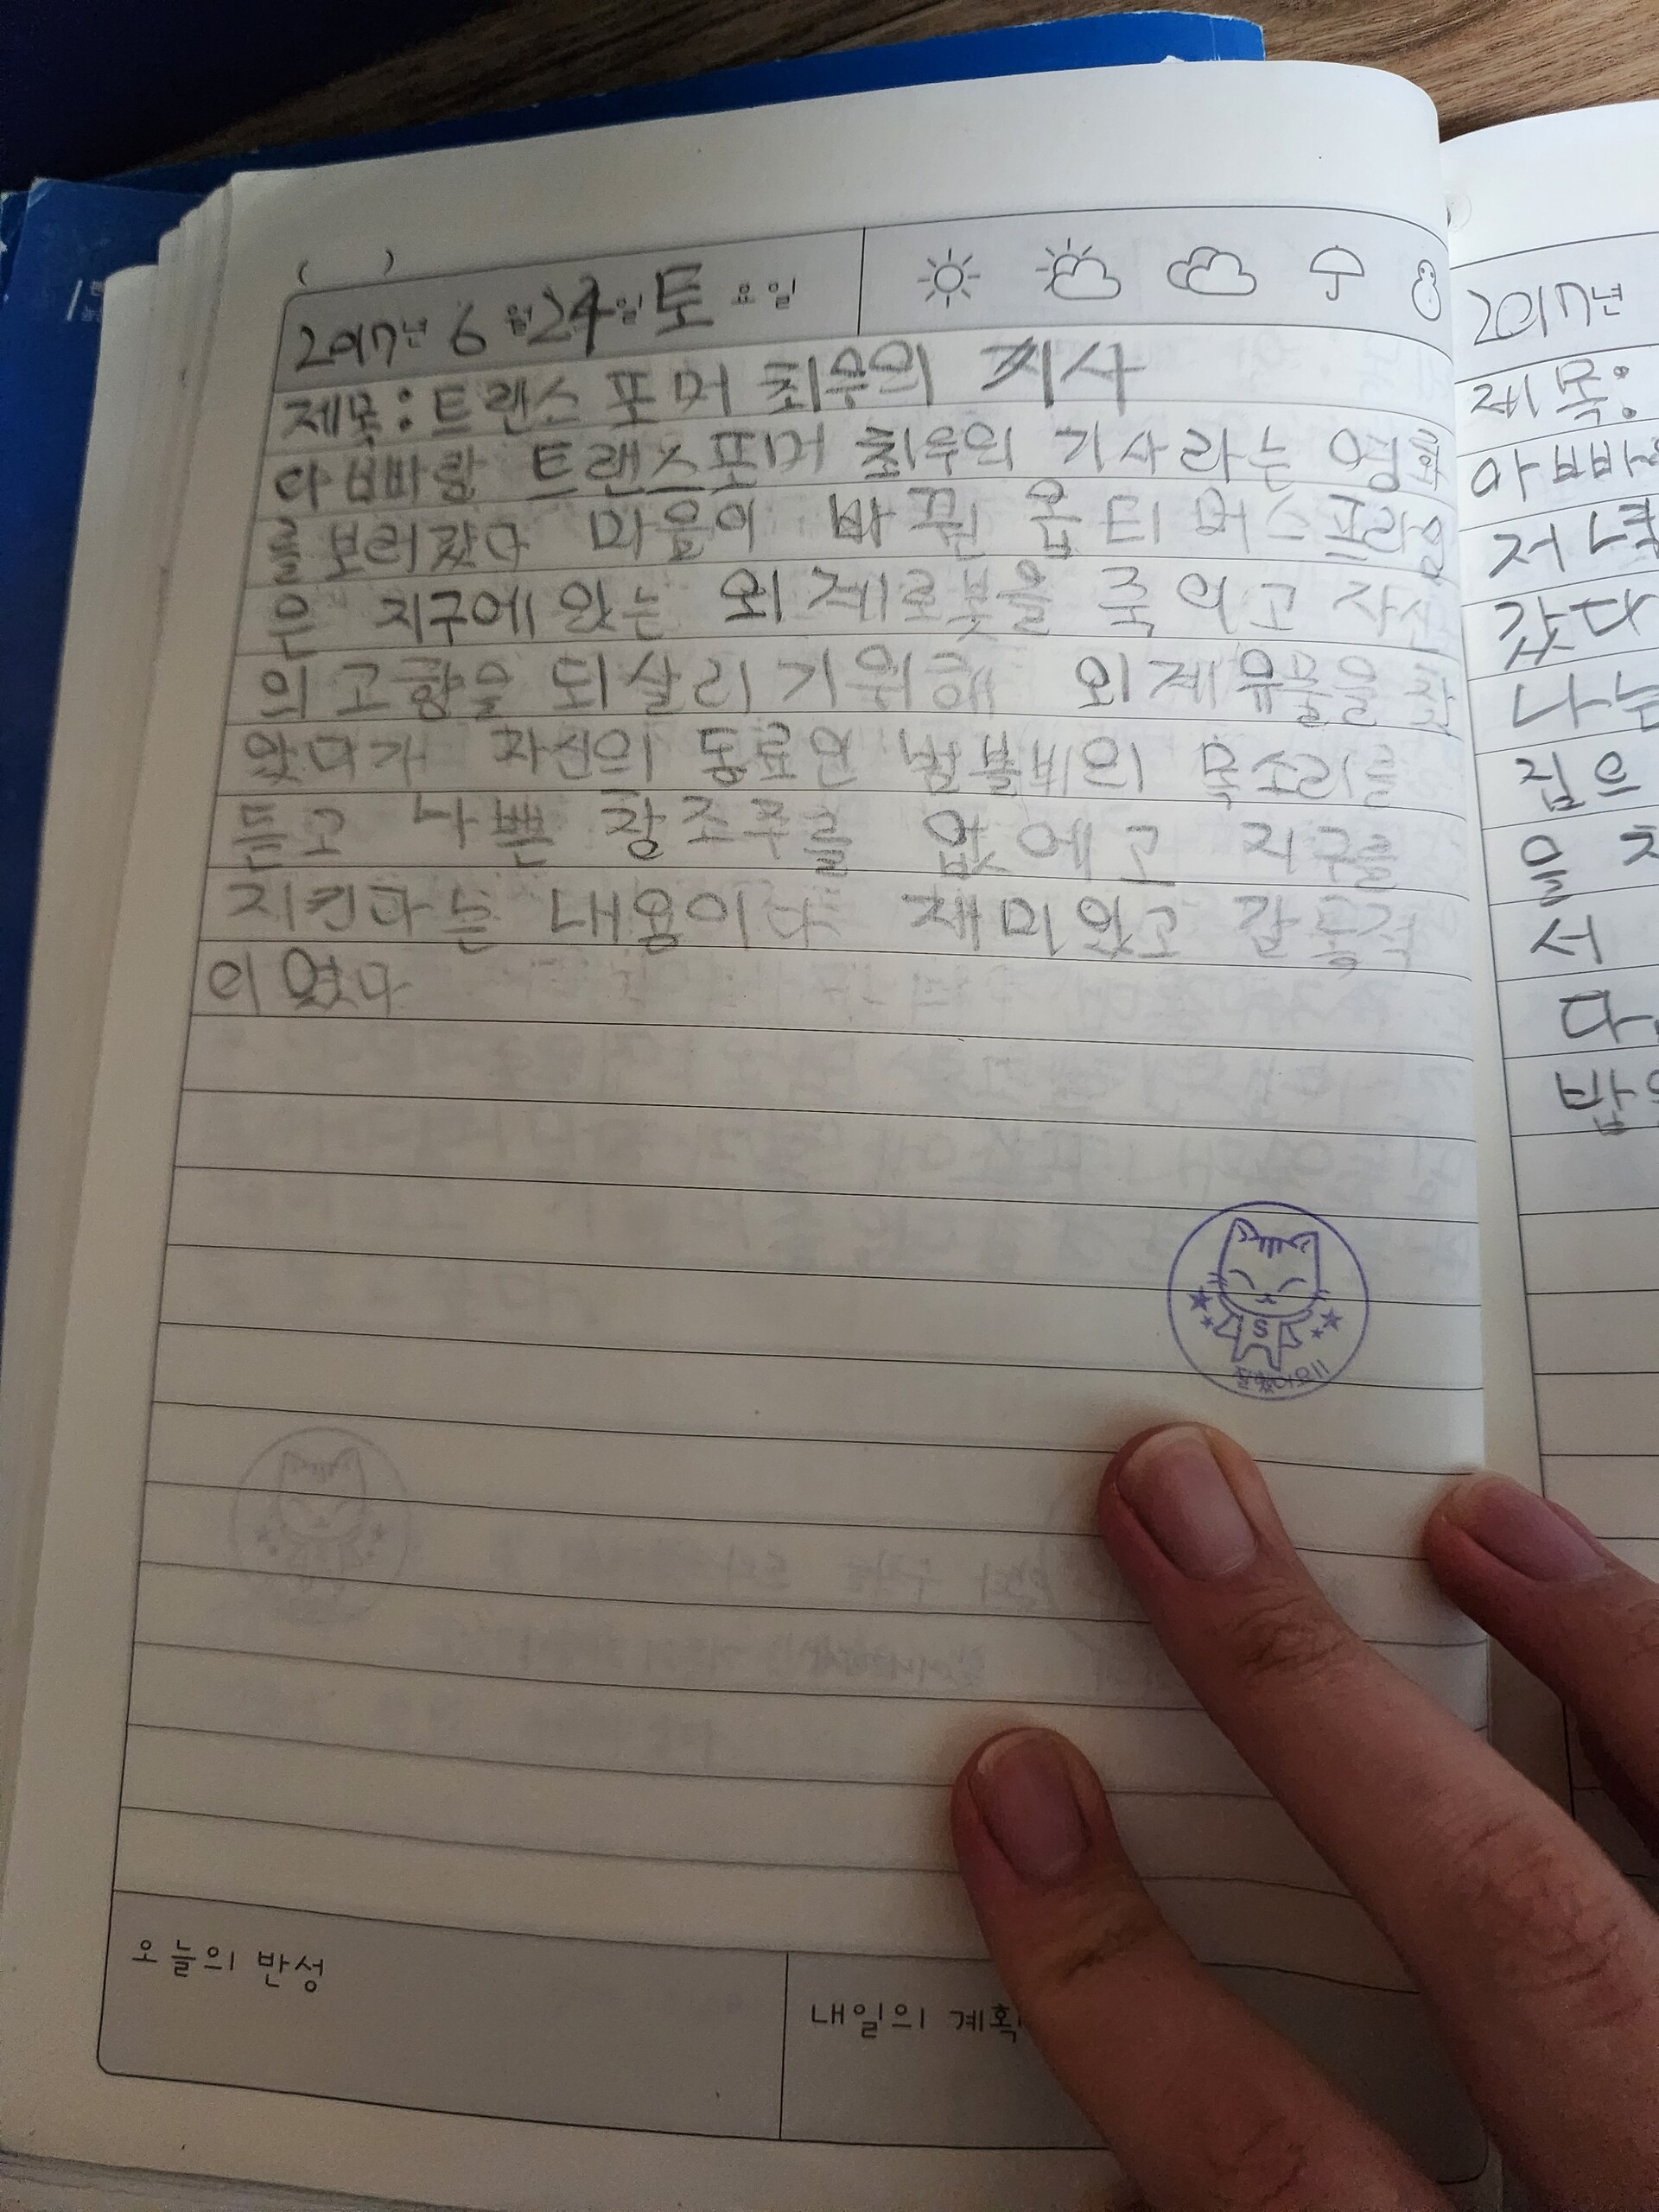 ( )
2017년 6월 24일 토요일
제목: 트랜스포머 최후의 기사
아빠랑 트랜스포머 최후의 기사라는 영화
를보러갔다 마음이 바뀐 옵티머스프라임
은 지구에있는 외계로봇을 죽의고 자신
의고향을 되살리기위해 외계유물을 찾
았다가 자신의 동료인 범블비의 목소리를
듣고 나쁜 창조주를 없에고 지구를
지킨다는 내용이다 재미있고 감동적
이였다
S
오늘의 반성
내일의 계획
2017년
제목:
아빠
저녁
갔다
나는
집으
을
서
다.
밥